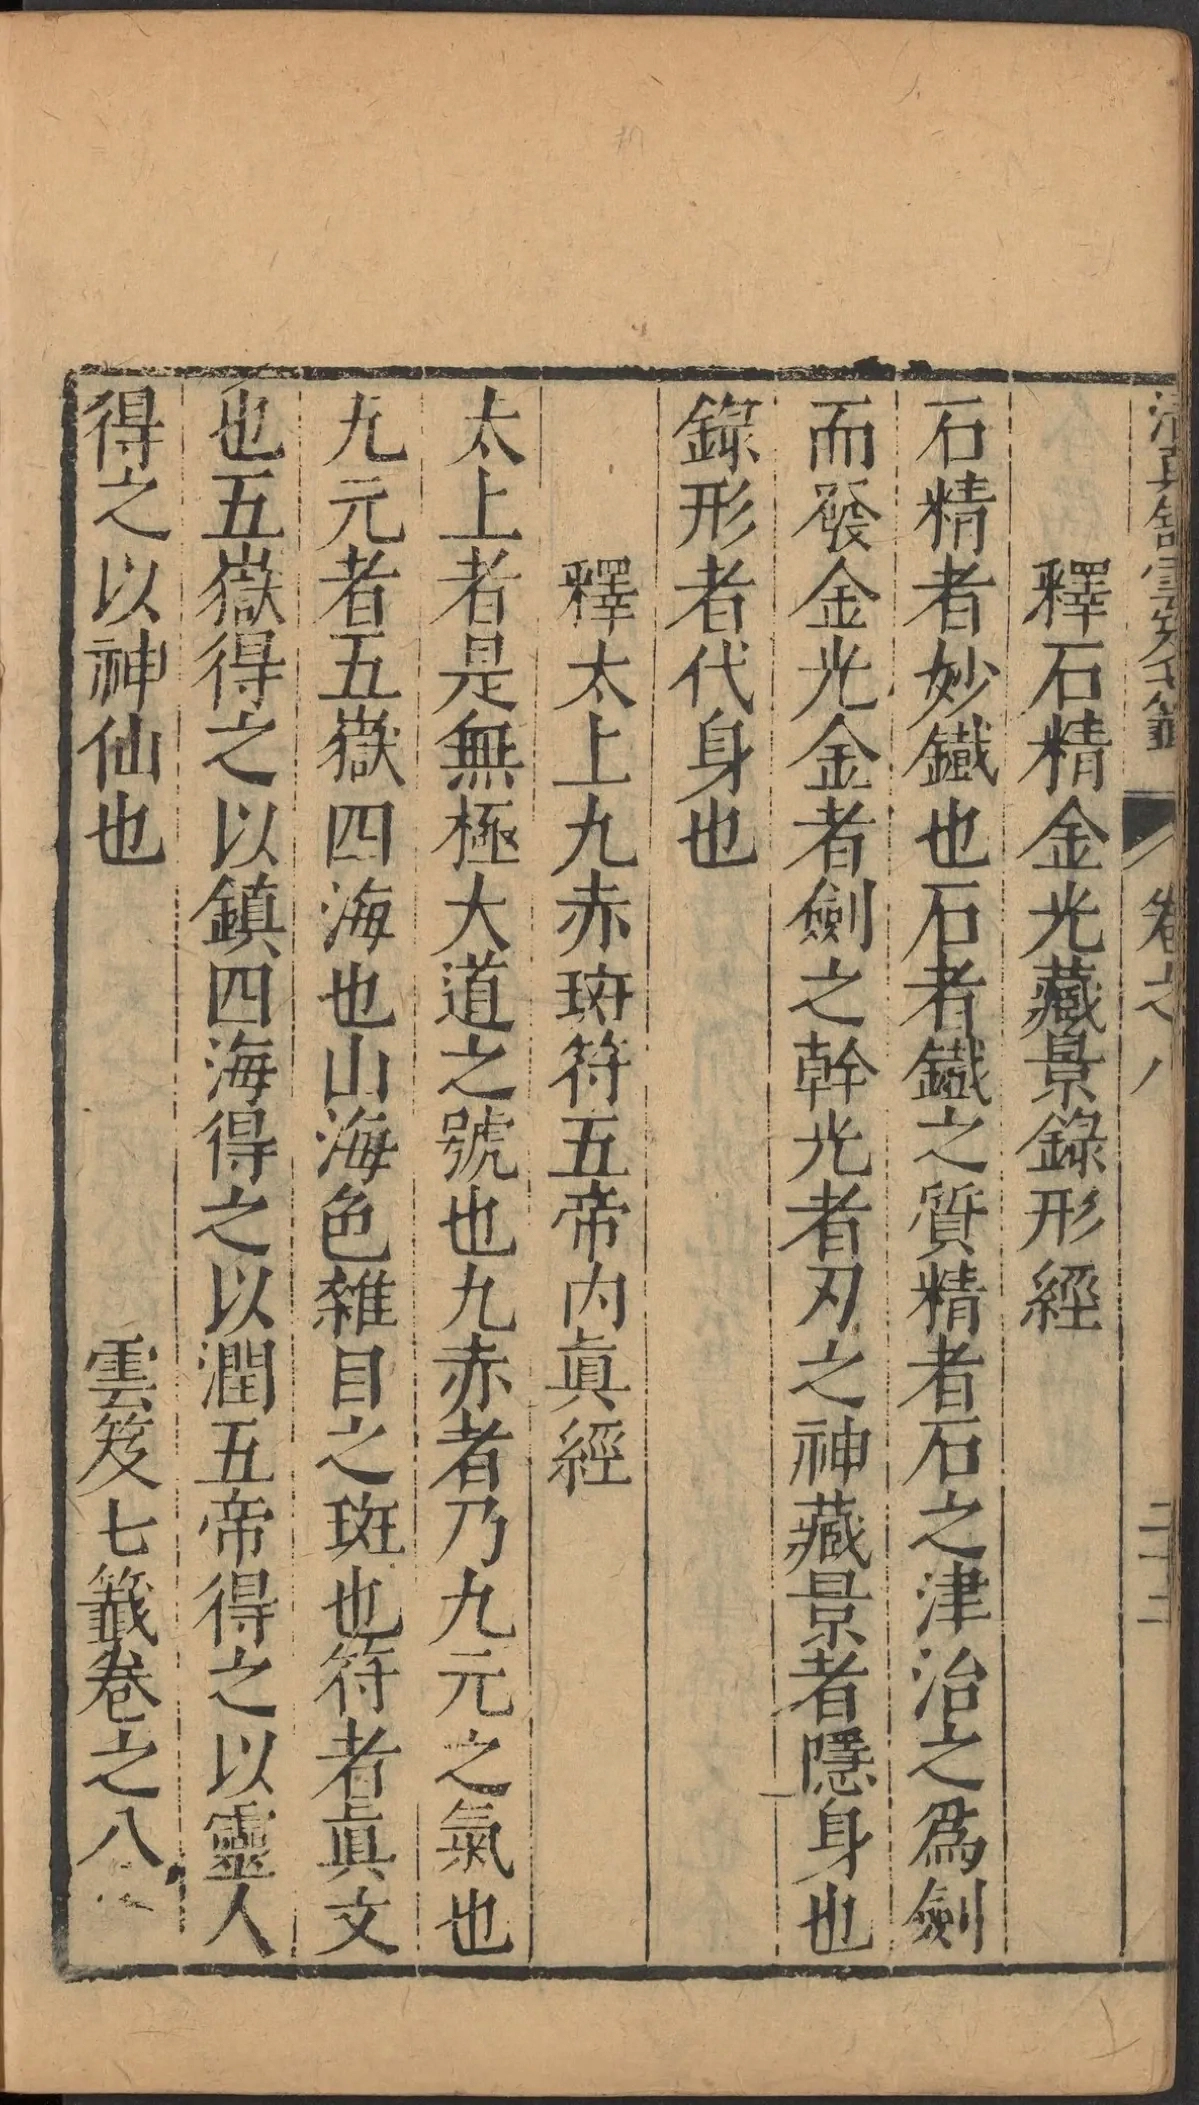 清真館雲笈七籤 卷之八 二十二
釋石精金光藏景錄形經
石精者妙鐵也石者鐵之質精者石之津治之爲劍
而發金光金者劍之幹光者刃之神藏景者隱身也
錄形者代身也
釋太上九赤斑符五帝內眞經
太上者是無極大道之號也九赤者乃九元之氣也
九元者五嶽四海也山海色雜目之斑也符者眞文
也五嶽得之以鎮四海得之以潤五帝得之以靈人
得之以神仙也
雲笈七籤卷之八